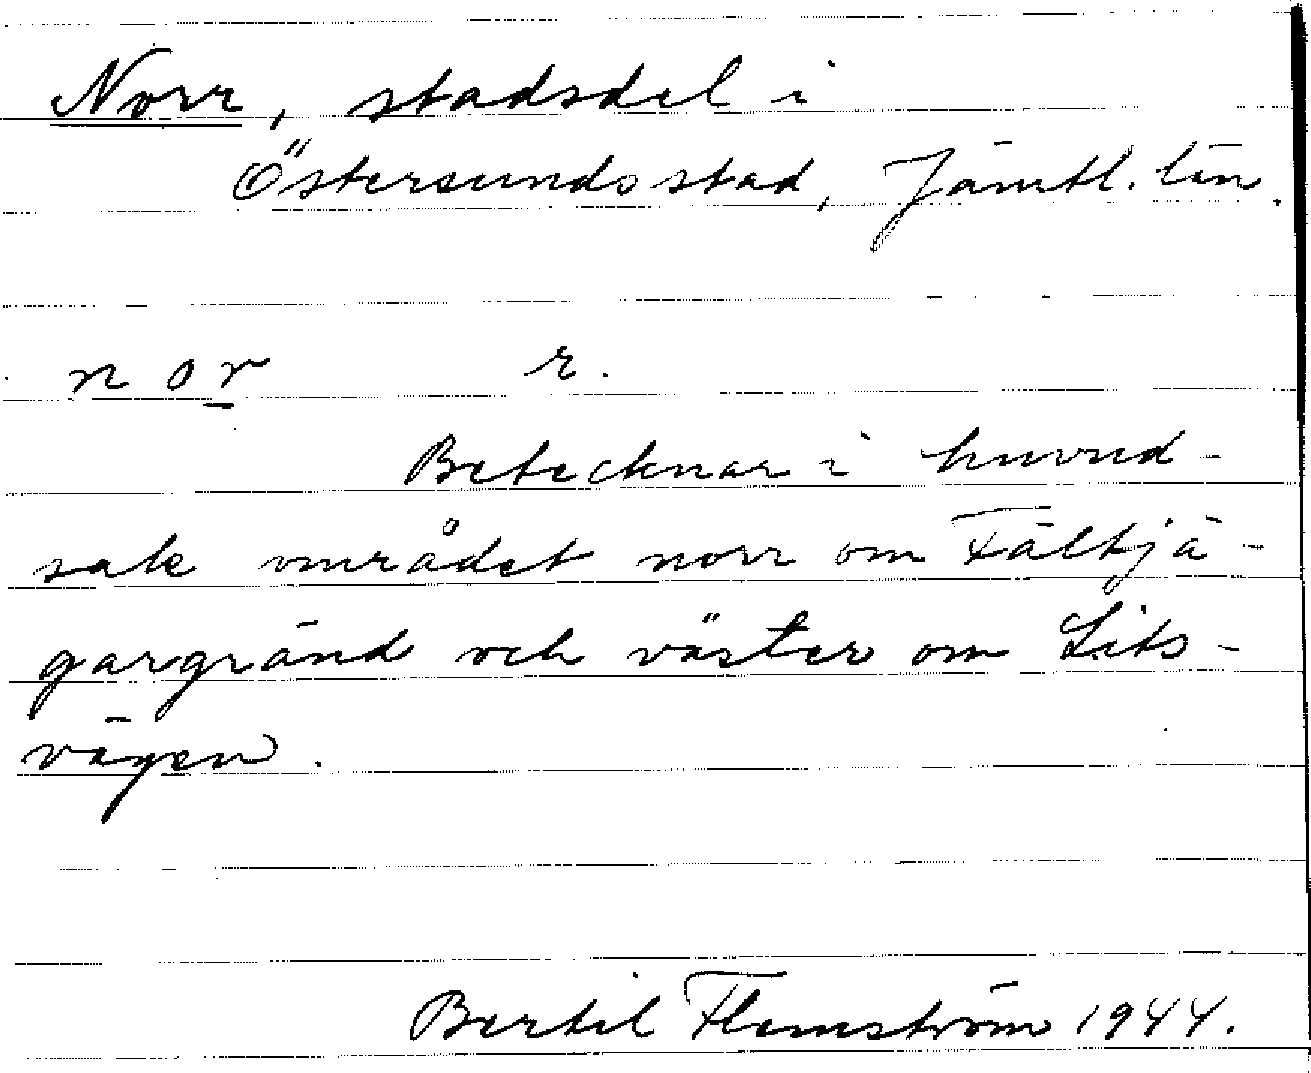 Norr, stadsdel i
Östersunds stad, Jämtl. län.
n o r r.
Betecknar i huvud-
sak området norr om Fältjä-
gargränd och väster om Lits-
vägen.
Bertil Flemström 1944.